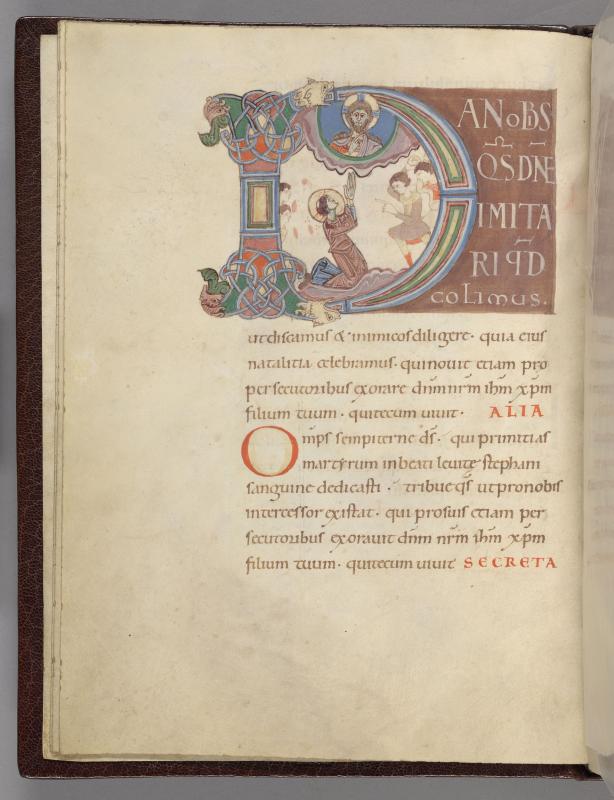 DA NOBIS
QS DNE
IMITA
RI QD
COLIMUS.
ut discamus & inimicos diligere· quia eius
natalitia celebramus· qui nouit etiam pro
persecutoribus exorare dnm nrm ihm xpm
filium tuum· qui tecum uiuit· ALIA
Omps sempiterne ds· qui primitias
martyrum in beati leuite stephani
sanguine dedicasti· tribue qs ut pro nobis
intercessor existat· qui pro suis etiam per
secutoribus exorauit dnm nrm ihm xpm
filium tuum· qui tecum uiuit SECRETA